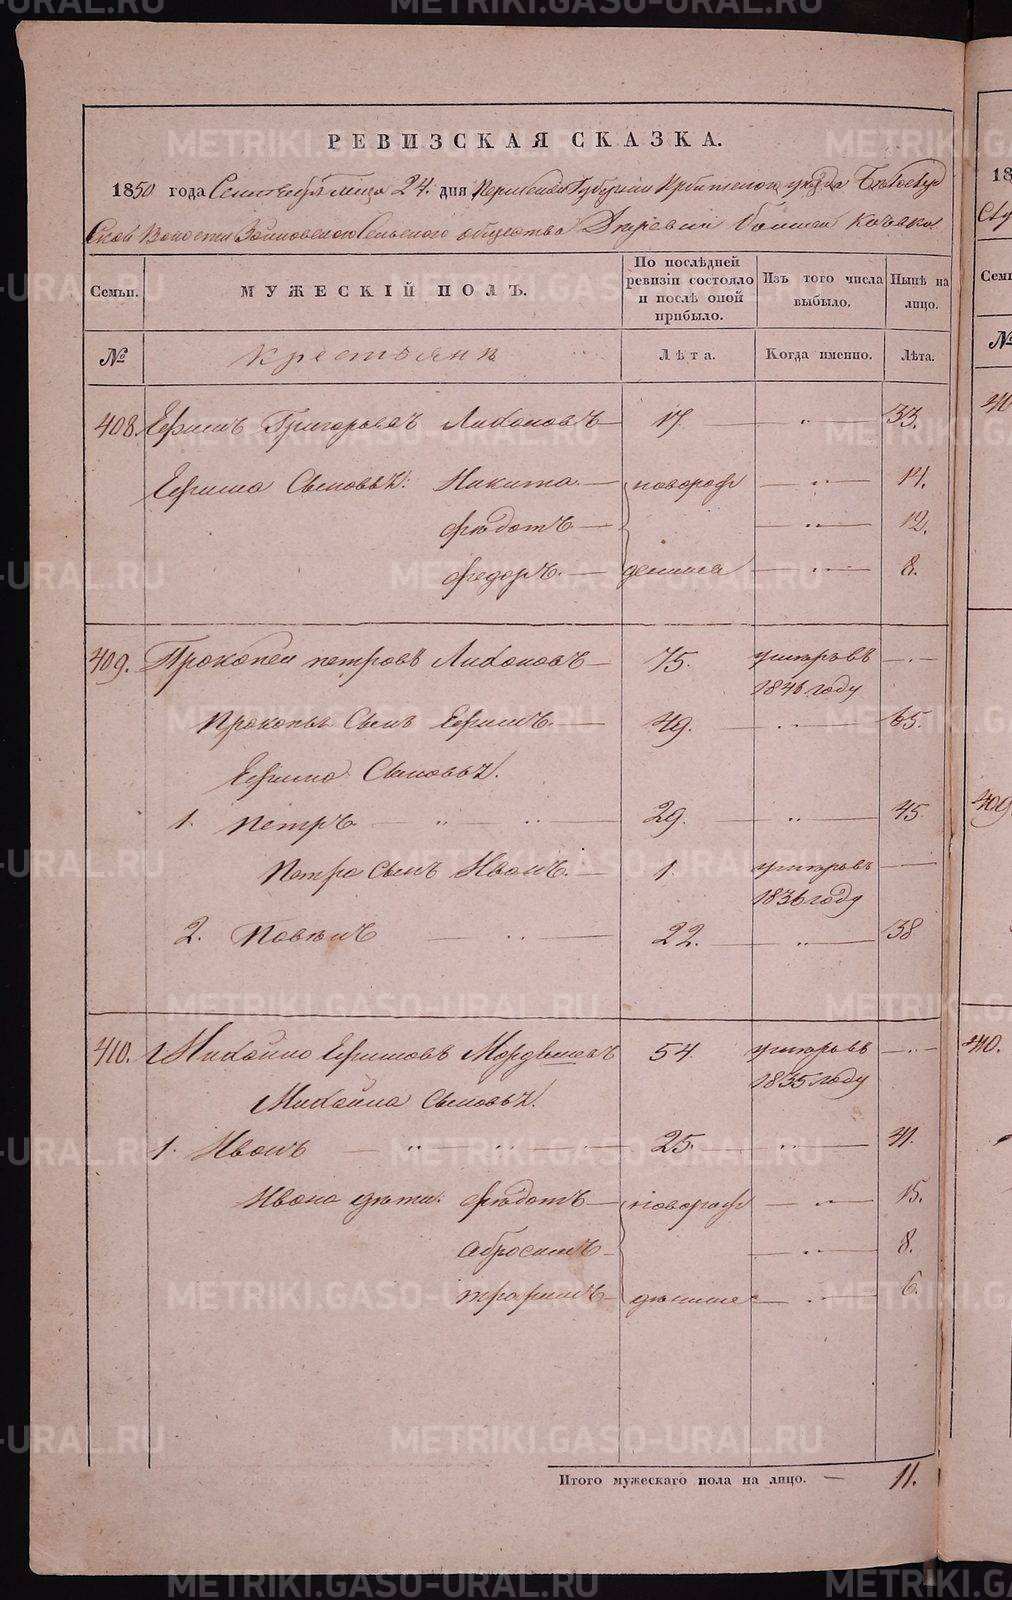 РЕВИЗСКАЯ СКАЗКА.
1850 года Сентября м‑ца 24. дня Пермской Губерніи Ирбитского уезда Бѣлослуд
Ской Волости Зайковского Сельского общества Деревни Большой Кочевки
Семьи. МУЖЕСКІЙ ПОЛЪ. По послѣдней ревизіи состояло и послѣ оной прибыло. Изъ того числа выбыло. Нынѣ на лицо.
№ Крестьяне Лѣта. Когда именно. Лѣта.
408. Ефимъ Григорьевъ Лихановъ 17. — „ — 33.
Ефима Сыновья: Никита — новорож — „ — 14.
Федотъ — — „ — 12.
Федоръ. — денные — „ — 8.
409. Прокопей петровъ Лихановъ 75. умеръ въ 1846 году — „ —
Прокопья Сынъ Ефимъ. 49. — „ — 65.
Ефима Сыновья:
1. петръ „ — „ — 29. — „ — 45.
Петра Сынъ Иванъ. — 1. умеръ въ 1836 году —
2. Павелъ — „ — 22. — „ — 38
410. Михайло Ефимовъ Мордвиновъ 54. умеръ въ 1835 году — „ —
Михайла Сыновья:
1. Иванъ — „ — 25. — „ — 41.
Ивана дети: Федотъ — новорож — „ — 15.
Абросимъ — — „ — 8.
трофимъ — денные — „ — 6.
Итого мужескаго пола на лицо. — 11.
18
Су
Семьи
№
40
409
410.
METRIKI.GASO-URAL.RU